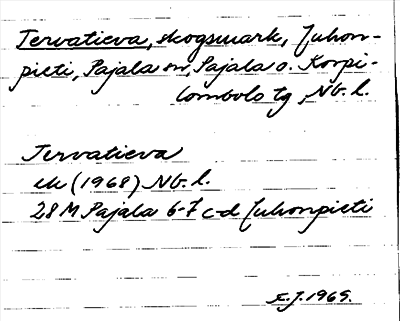 Tervatieva, skogsmark, Juhon-
pieti, Pajala sn, Pajala o. Korpi-
lombolo tg, Nb. l.
Tervatieva
ek (1968) Nb. l.
28M Pajala 6-7 c-d Juhonpieti
E.J. 1969.